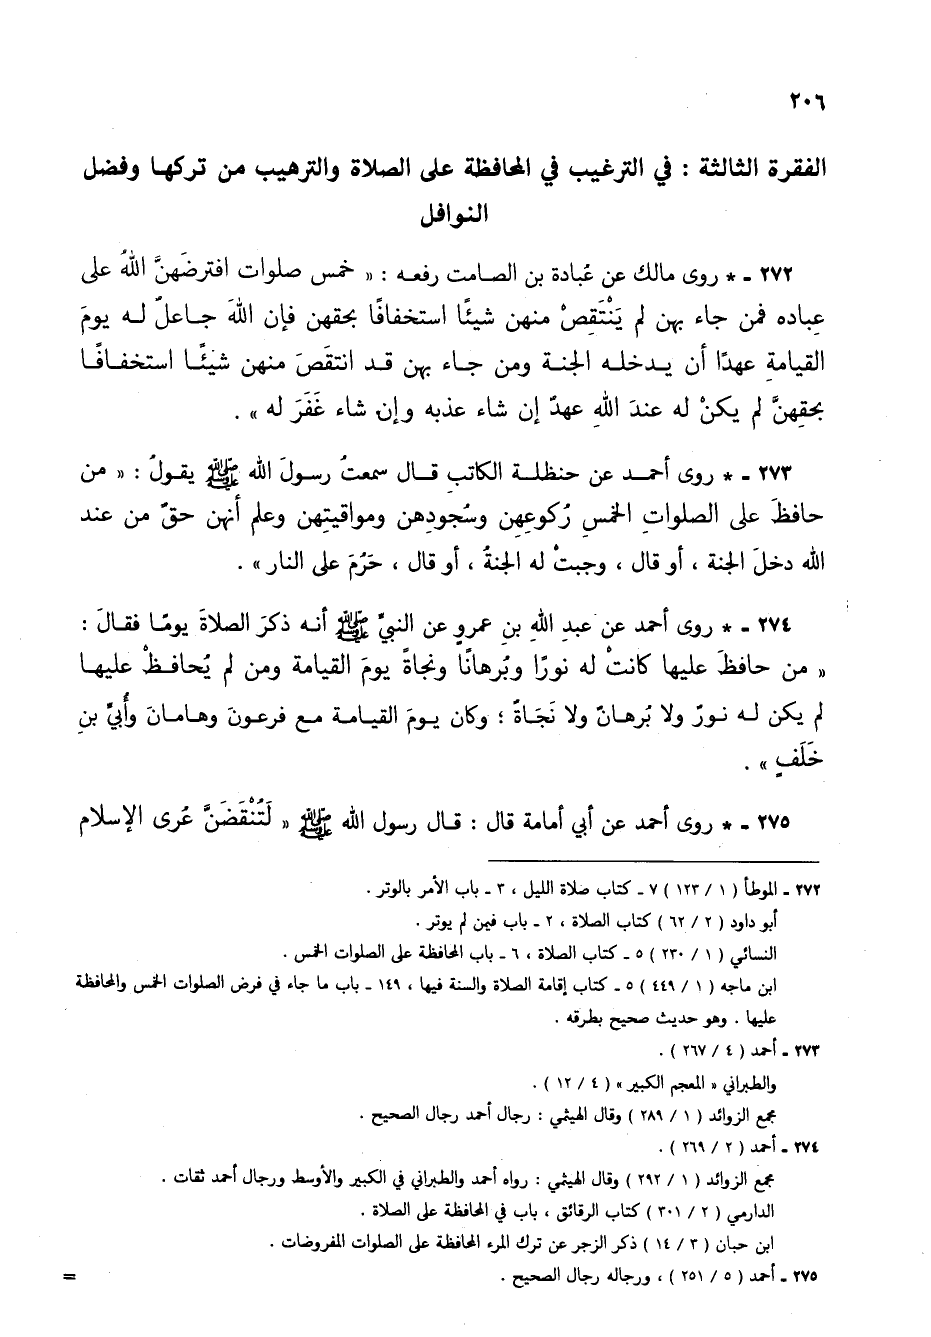 ٢٠٦
الفقرة الثالثة : في الترغيب في المحافظة على الصلاة والترهيب من تركها وفضل
النوافل
٢٧٢ ـ * روى مالك عن عُبادة بن الصامت رفعه : « خمس صلوات افترضَهنَّ اللهُ على
عِباده فمن جاء بهن لم يَنْتَقِصْ منهن شيئًا استخفافًا بحقهن فإن اللهَ جاعلٌ له يومَ
القيامةِ عهدًا أن يدخله الجنة ومن جاء بهن قد انتقَصَ منهن شيئًا استخفافًا
بحقهنَّ لم يكنْ له عندَ اللهِ عهدٌ إن شاء عذبه وإن شاء غَفَرَ له » .
٢٧٣ ـ * روى أحمد عن حنظلة الكاتبِ قال سمعتُ رسولَ الله ﷺ يقولُ : « من
حافظَ على الصلواتِ الخمسِ رُكوعِهن وسُجودِهن ومواقيتِهن وعلم أنهن حقٌ من عند
الله دخلَ الجنة ، أو قال ، وجبتْ له الجنةُ ، أو قال ، حَرُمَ على النار » .
٢٧٤ ـ * روى أحمد عن عبدِ اللهِ بنِ عمرٍو عن النبيِّ ﷺ أنه ذكرَ الصلاةَ يومًا فقالَ :
« من حافظَ عليها كانتْ له نورًا وبُرهانًا ونجاةً يومَ القيامة ومن لم يُحافظْ عليها
لم يكن له نورٌ ولا بُرهانٌ ولا نَجَاةٌ ؛ وكان يومَ القيامة مع فرعونَ وهامانَ وأُبيِّ بنِ
خَلَفٍ » .
٢٧٥ ـ * روى أحمد عن أبي أمامة قال : قال رسول الله ﷺ « لَتُنْقَضَنَّ عُرى الإسلام
٢٧٢ ـ الموطأ ( ١ / ١٢٣ ) ٧ ـ كتاب صلاة الليل ، ٣ ـ باب الأمر بالوتر .
أبو داود ( ٢ / ٦٢ ) كتاب الصلاة ، ٢ ـ باب فيمن لم يوتر .
النسائي ( ١ / ٢٣٠ ) ٥ ـ كتاب الصلاة ، ٦ ـ باب المحافظة على الصلوات الخمس .
ابن ماجه ( ١ / ٤٤٩ ) ٥ ـ كتاب إقامة الصلاة والسنة فيها ، ١٤٩ ـ باب ما جاء في فرض الصلوات الخمس والمحافظة
عليها . وهو حديث صحيح بطرقه .
٢٧٣ ـ أحمد ( ٤ / ٢٦٧ ) .
والطبراني « المعجم الكبير » ( ٤ / ١٢ ) .
مجمع الزوائد ( ١ / ٢٨٩ ) وقال الهيثمي : رجال أحمد رجال الصحيح .
٢٧٤ ـ أحمد ( ٢ / ٢٦٩ ) .
مجمع الزوائد ( ١ / ٢٩٢ ) وقال الهيثمي : رواه أحمد والطبراني في الكبير والأوسط ورجال أحمد ثقات .
الدارمي ( ٢ / ٣٠١ ) كتاب الرقائق ، باب في المحافظة على الصلاة .
ابن حبان ( ٣ / ١٤ ) ذكر الزجر عن ترك المرء المحافظة على الصلوات المفروضات .
٢٧٥ ـ أحمد ( ٥ / ٢٥١ ) ، ورجاله رجال الصحيح . =